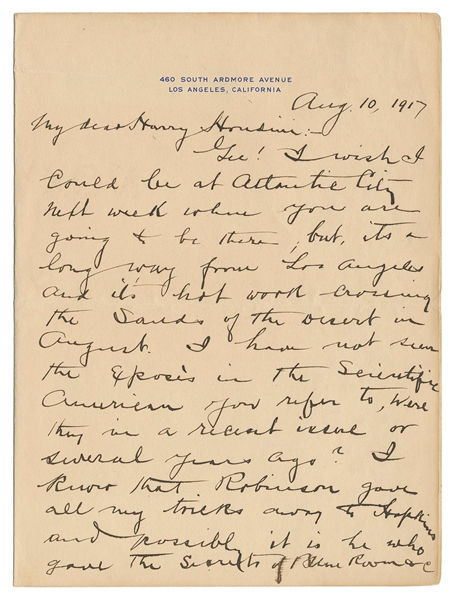 460 SOUTH ARDMORE AVENUE
LOS ANGELES, CALIFORNIA
Aug. 10, 1917
My dear Harry Houdini:-
Gee! I wish I
could be at Atlantic City
next week when you are
going to be there, but, its a
long way from Los Angeles
and it's hot work crossing
the Sands of the Desert in
August. I have not seen
the Exposès in the Scientific
American you refer to, Were
they in a recent issue or
several years ago? I
know that Robinson gave
all my tricks away to Hopkins
and possibly it is he who
gave the Secrets of Blue Room &c